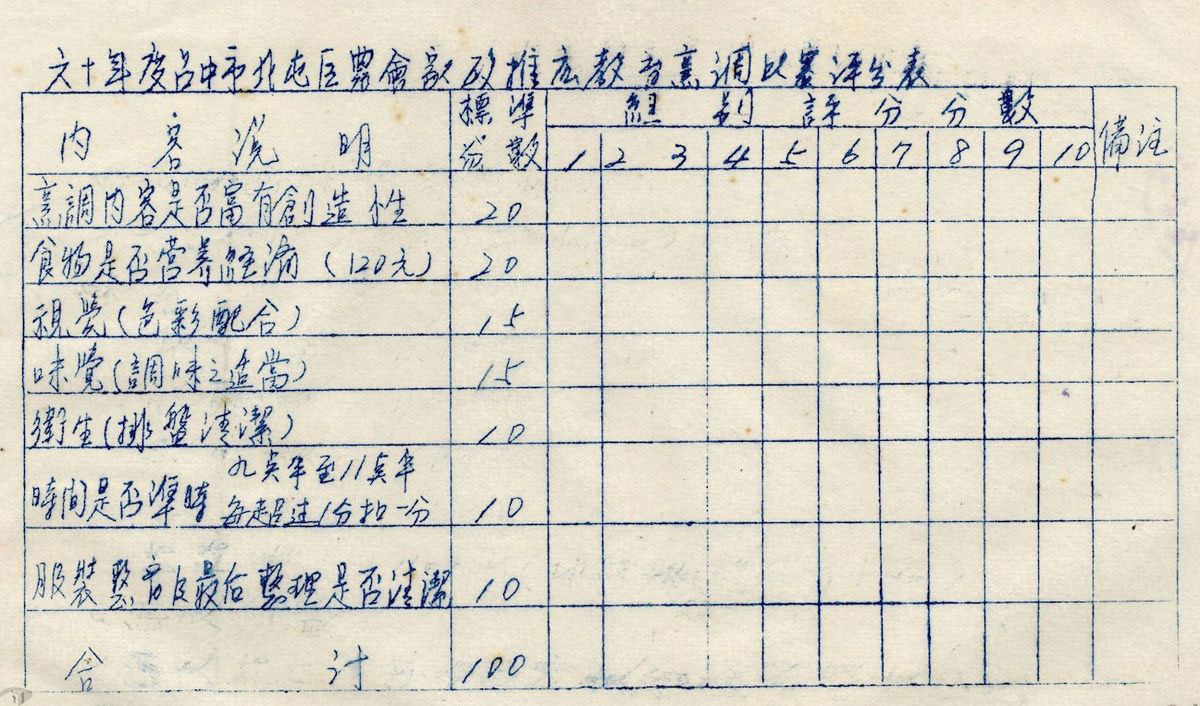 六十年度台中市北屯区農會家政推広教育烹調比賽评分表
內容説明 標準份數 組別評分分數 備註
1 2 3 4 5 6 7 8 9 10
烹調內容是否富有創造性 20
食物是否营養経濟(120元) 20
視覺(色彩配合) 15
味覺(調味之适當) 15
衛生(排盤清潔) 10
時間是否準時 九点半至11点半 每超过1分扣一分 10
服裝整齐及最后整理是否清潔 10
合計 100